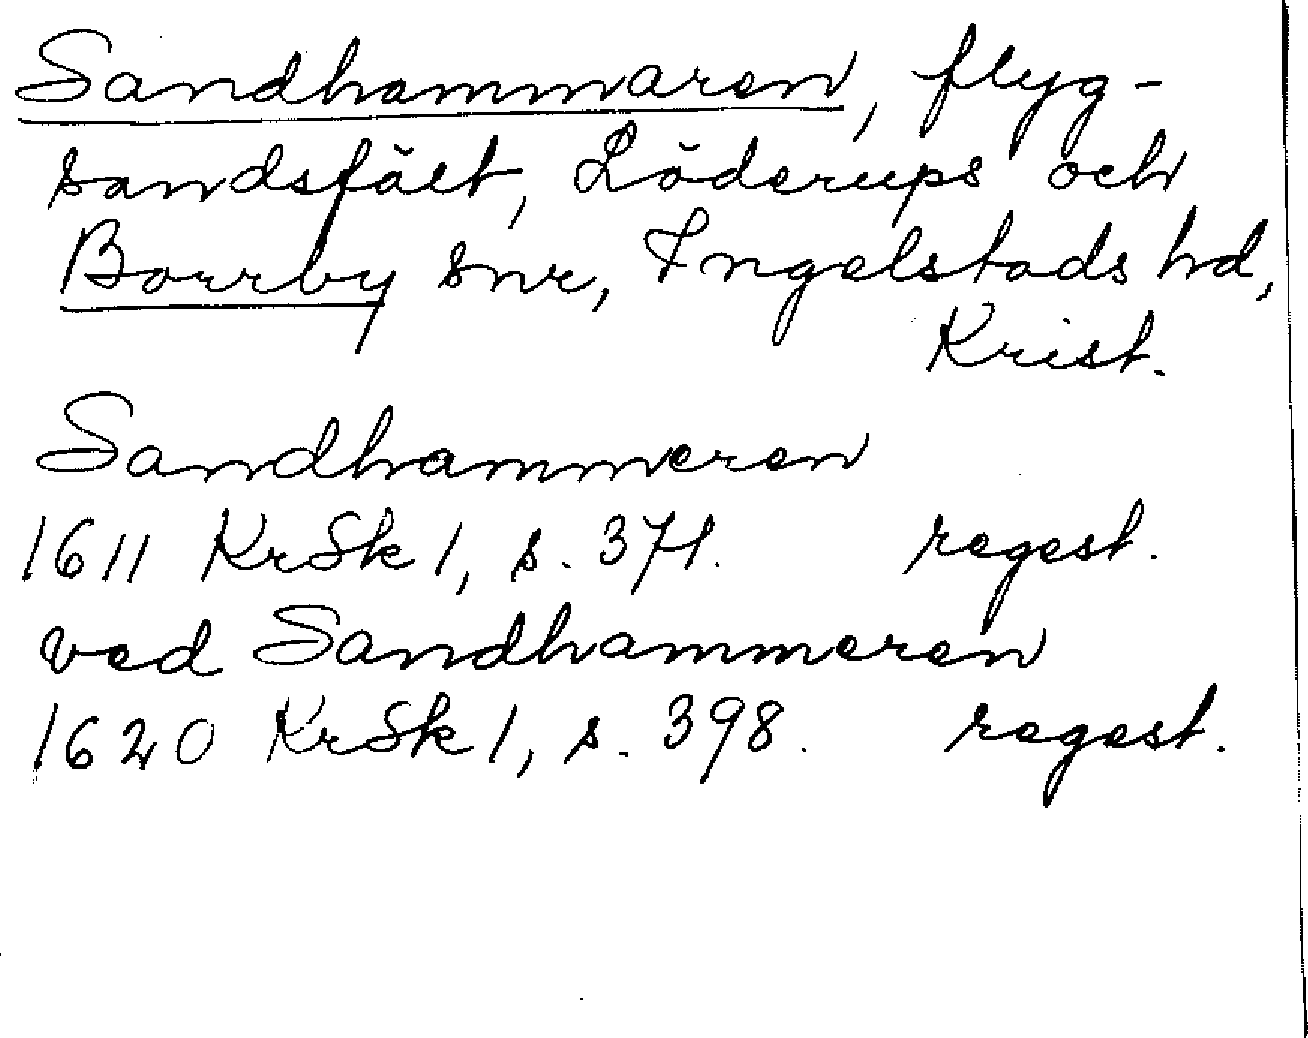 Sandhammaren, flyg-
sandsfält, Löderups och
Borrby snr, Ingelstads hd,
Krist.
Sandhammeren
1611 KrSk 1, s. 371. regest.
ved Sandhammeren
1620 KrSk 1, s. 398. regest.